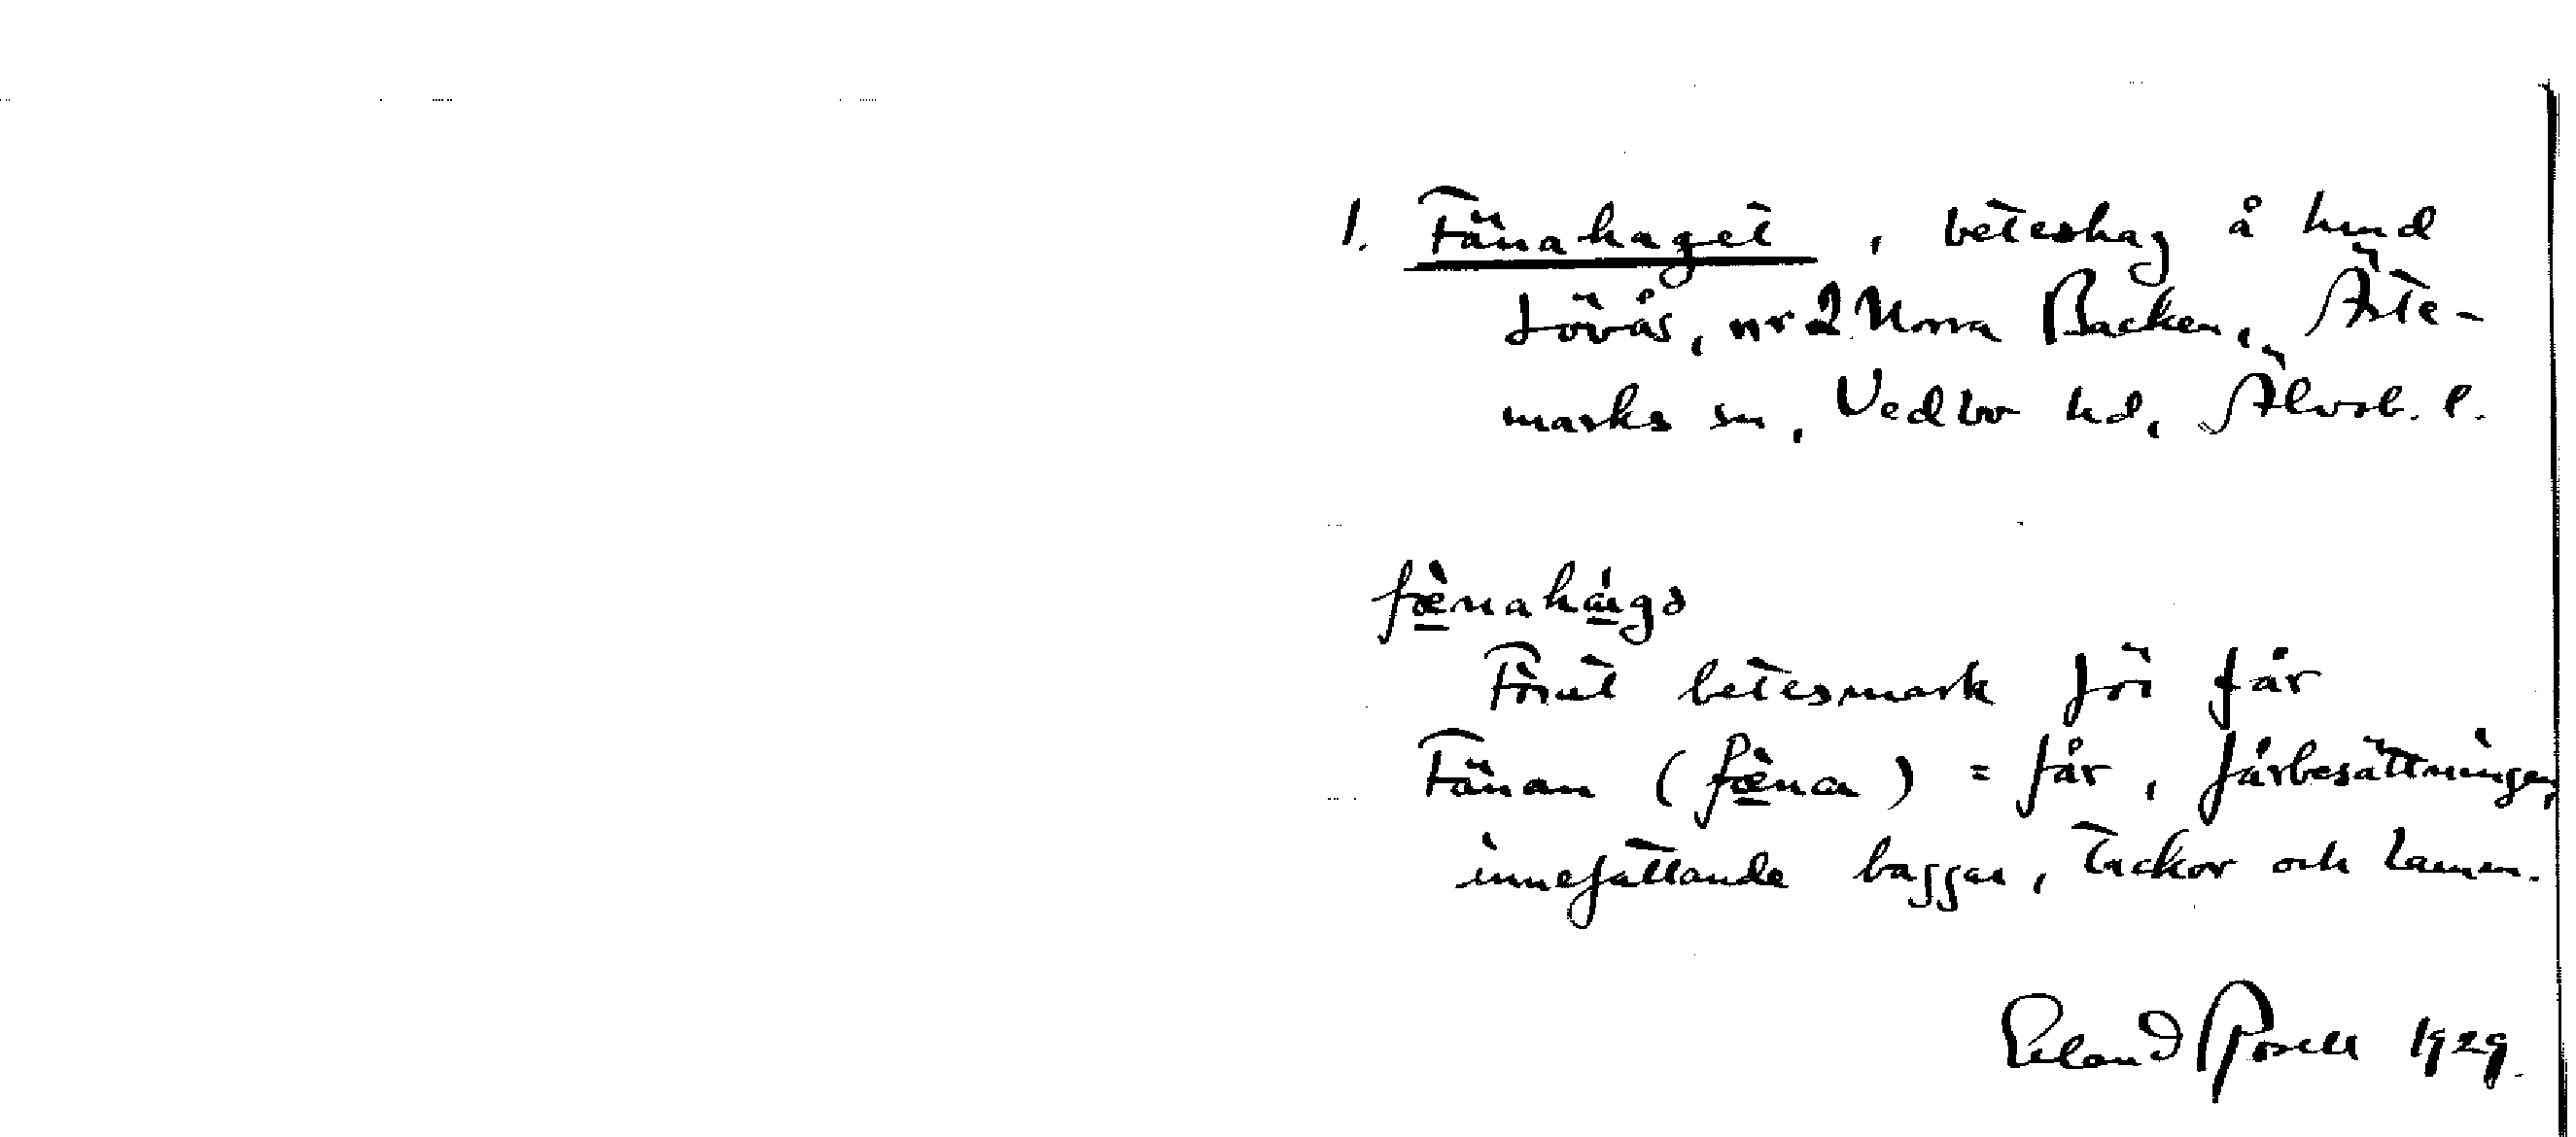 1. Fänahaget, beteshag å hmd
Lövås, nr 2 Norra Backen, Ärte-
marks sn, Vedbo hd, Älvsb. l.
fæ̀nahágə
Förut betesmark för får
Fänan (fæ̀na) = får, fårbesättningen,
innefattande baggar, tackor och lamm.
Erland Rosell 1929.